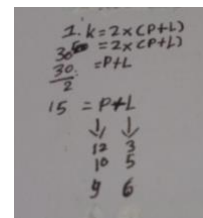 1. K=2x(P+L)
30 =2x(P+L)
30 =P+L
2
15 = P+L
↓ ↓
12 3
10 5
9 6